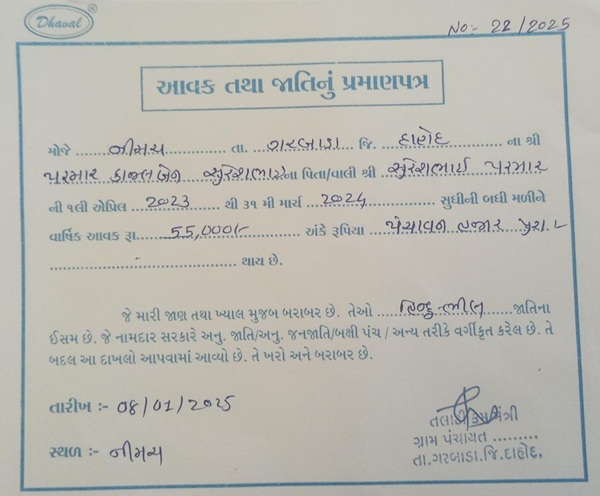 Dhaval ®
No:- 22/2025
આવક તથા જાતિનું પ્રમાણપત્ર
મોજે નીમચ તા. ગરબાડા જિ. દાહોદ ના શ્રી
પરમાર કાજલબેન સુરેશભાઇના પિતા/વાલી શ્રી સુરેશભાઇ પરમાર
ની ૧લી એપ્રિલ 2023 થી ૩૧ મી માર્ચ 2024 સુધીની બધી મળીને
વાર્ષિક આવક રૂા. 55,000/- અંકે રૂપિયા પંચાવન હજાર પુરા./-
થાય છે.
જે મારી જાણ તથા ખ્યાલ મુજબ બરાબર છે. તેઓ હિન્દુ ભીલ જાતિના
ઈસમ છે. જે નામદાર સરકારે અનુ. જાતિ/અનુ. જનજાતિ/બક્ષી પંચ / અન્ય તરીકે વર્ગીકૃત કરેલ છે. તે
બદલ આ દાખલો આપવામાં આવ્યો છે. તે ખરો અને બરાબર છે.
તારીખ :- 08/01/2025
સ્થળ :- નીમચ
તલાટી કમ મંત્રી
ગ્રામ પંચાયત .........
તા.ગરબાડા.જિ.દાહોદ.